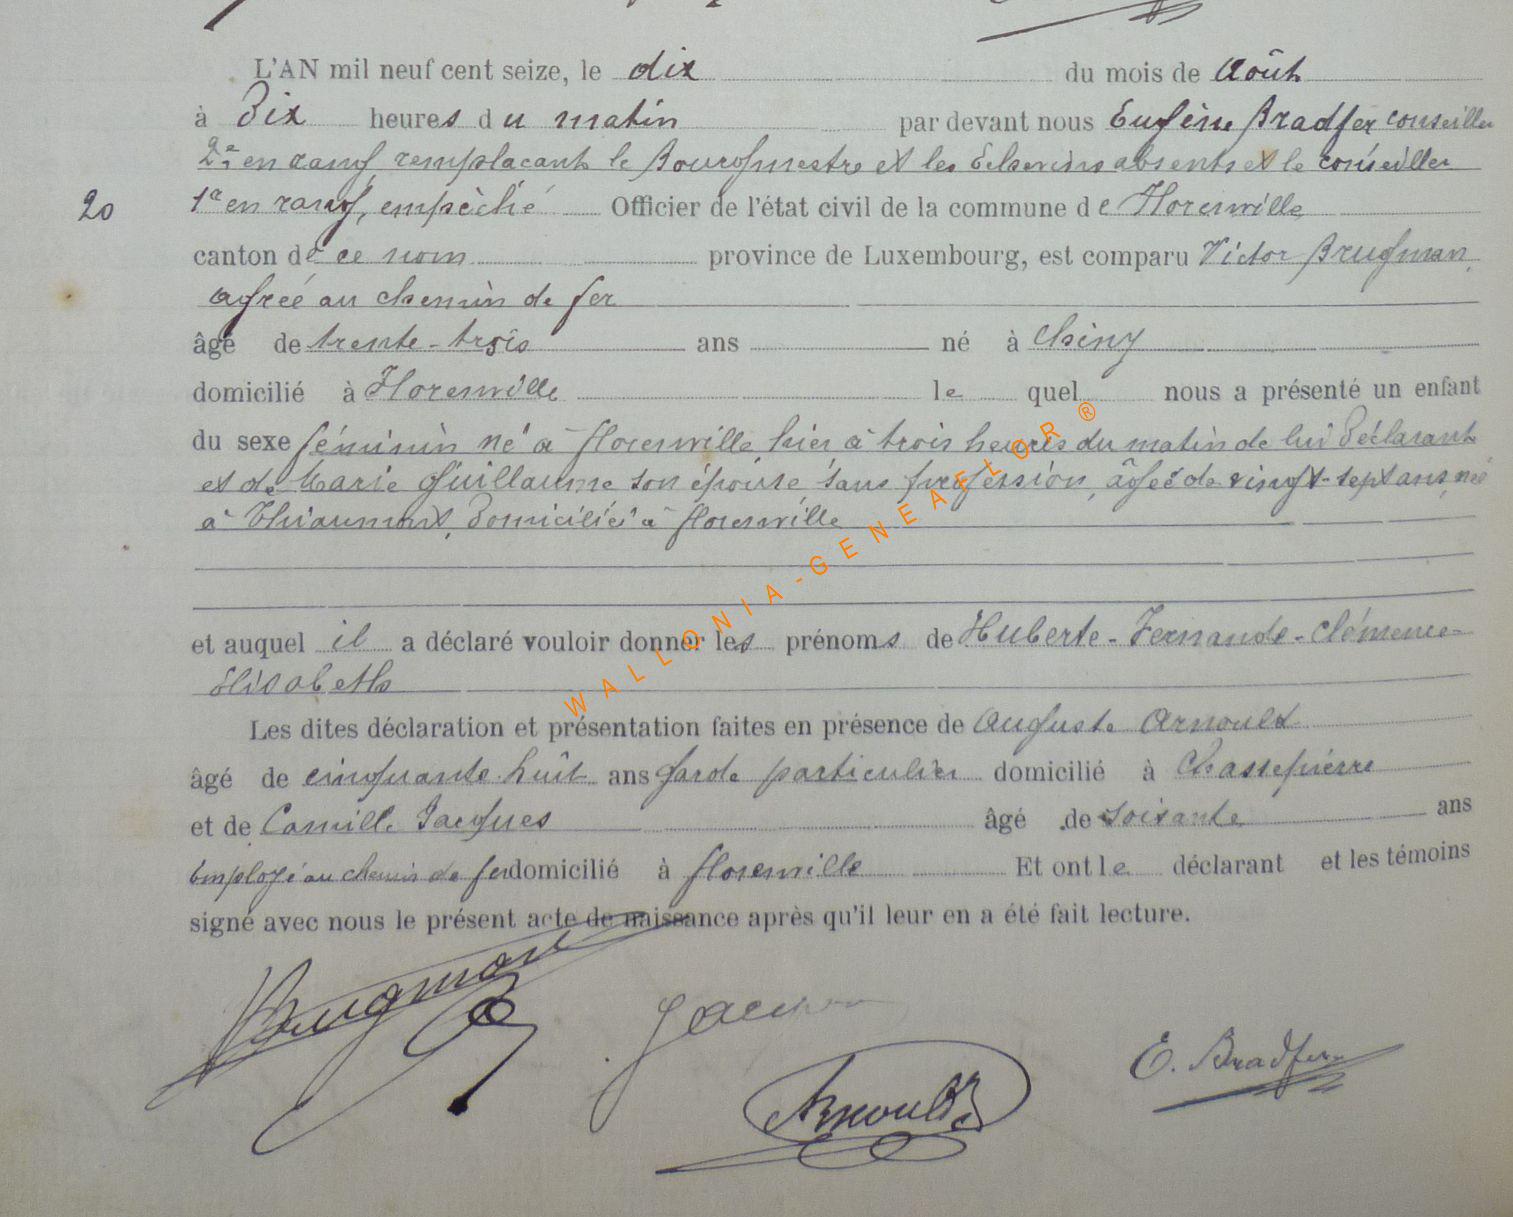 L'AN mil neuf cent seize, le dix du mois de Août
à Dix heures du matin par devant nous Eugène Bradfer conseiller
2e en rang remplaçant le Bourgmestre et les Echevins absents et le conseiller
20 1er en rang, empêché Officier de l'état civil de la commune de Florenville
canton de ce nom province de Luxembourg, est comparu Victor Brugman,
agréé au chemin de fer
âgé de trente-trois ans né à Chiny
domicilié à Florenville lequel nous a présenté un enfant
du sexe féminin né à Florenville hier à trois heures du matin de lui Déclarant
et de Marie Guillaume son épouse sans profession, âgée de vingt-sept ans, née
à Thiaumont, Domiciliée à Florenville
et auquel il a déclaré vouloir donner les prénoms de Huberte-Fernande-Clémence-
Elisabeth
Les dites déclaration et présentation faites en présence de Auguste Arnould
âgé de cinquante huit ans garde particulier domicilié à Chassepierre
et de Camille Jacques âgé de soixante ans
Employé au chemin de fer domicilié à Florenville Et ont le déclarant et les témoins
signé avec nous le présent acte de naissance après qu'il leur en a été fait lecture.
Brugman
E. Bradfer
Arnould
WALLONIA-GENEAFLOR ®